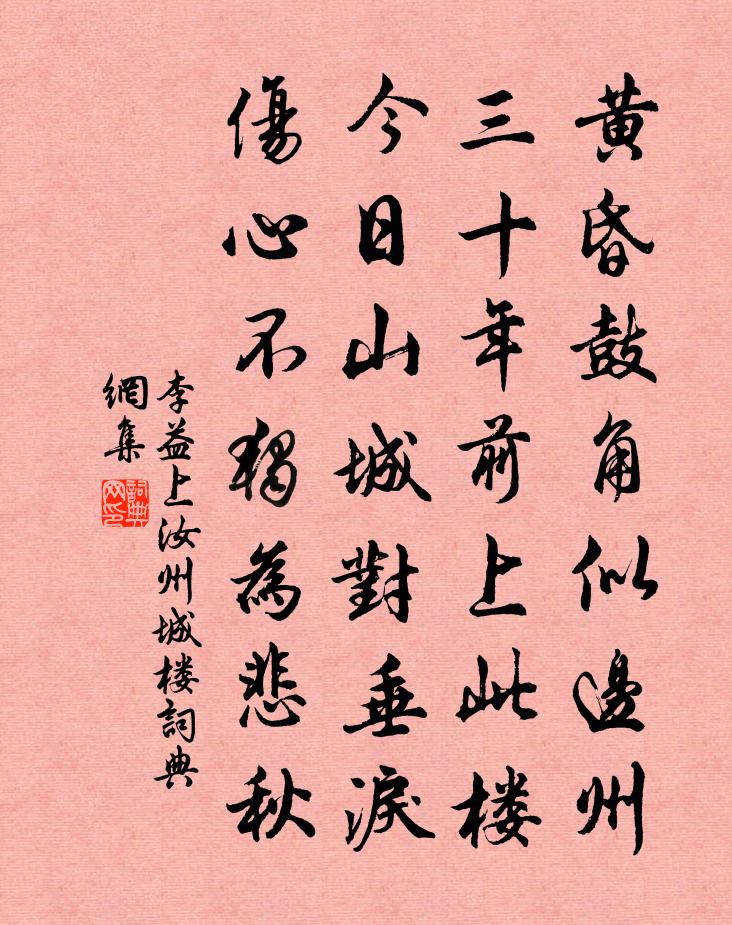 黃昏鼓角似邊州
三十年前上此楼
今日山城對垂淚
傷心不獨為悲秋
李益上汝州城楼詞典
網集
詞典
网印